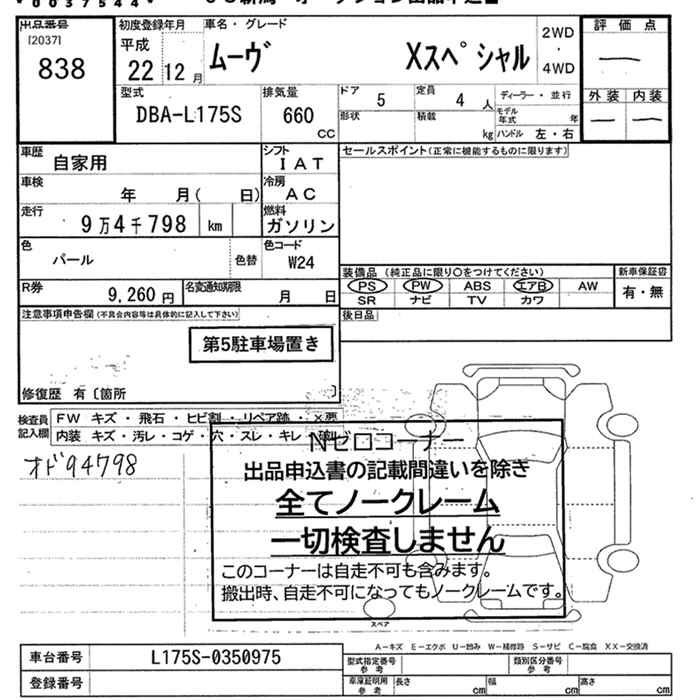 *0037544*
出品番号 初度登録年月 車名・グレード 2WD 評価点
[2037] 平成 ・
838 22 12月 ムーヴ Xスペシャル 4WD —
外装 内装
型式 排気量 ドア 5 定員 4人 ディーラー・並行 — —
DBA-L175S 660 形状 積載 モデル年式 年
CC kg ハンドル 左・右
車歴 自家用 シフト IAT セールスポイント(正常に機能するものに限ります)
車検 年 月( 日) 冷房 AC
走行 9万4千798 km 燃料 ガソリン
色 パール 色替 色コード W24
装備品(純正品に限り○をつけてください) 新車保証書
R券 9,260円 名変通知期限 月 日 PS PW ABS エアB AW 有・無
SR ナビ TV カワ
注意事項申告欄(不具合内容等は具体的に記入して下さい) 後日品
第5駐車場置き
修復歴 有〔箇所 〕
検査員 FW キズ・飛石・ヒビ割・リペア跡・X要
記入欄 内装 キズ・汚レ・コゲ・穴・スレ・キレ
オド94798
Nゼロコーナー
出品申込書の記載間違いを除き
全てノークレーム
一切検査しません
このコーナーは自走不可も含みます。
搬出時、自走不可になってもノークレームです。
スペア
A-キズ E-エクボ U-凹み W-補修跡 S-サビ C-腐食 XX-交換済
車台番号 L175S-0350975 型式指定番号 参考 類別区分番号 参考
登録番号 車庫証明用 参考 長さ cm 幅 cm 高さ cm